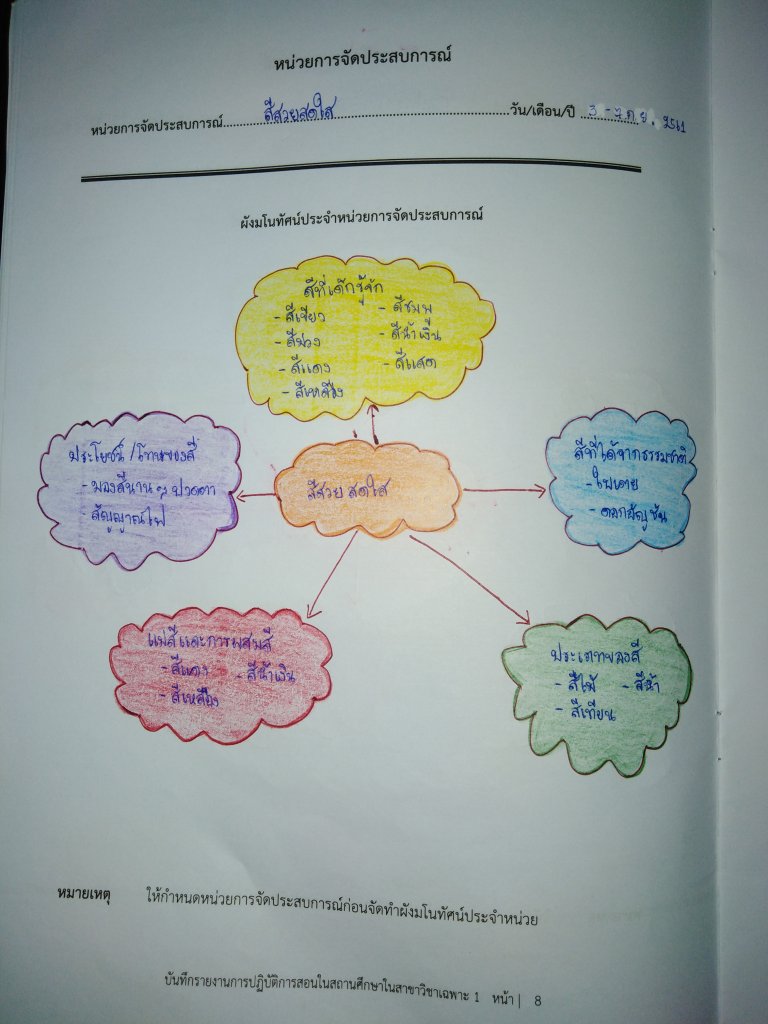 หน่วยการจัดประสบการณ์
หน่วยการจัดประสบการณ์ สีสวยสดใส วัน/เดือน/ปี 3 - 7 ก.ย. 2561
ผังมโนทัศน์ประจำหน่วยการจัดประสบการณ์
สีที่เด็กรู้จัก
- สีเขียว - สีชมพู
- สีม่วง - สีน้ำเงิน
- สีแดง - สีแสด
- สีเหลือง
ประโยชน์/โทษของสี
- มองสีนานๆ ปวดตา
สัญญาณไฟ
สีสวยสดใส
สีที่ได้จากธรรมชาติ
- ใบเตย
- ดอกอัญชัน
แม่สีและการผสมสี
- สีแดง - สีน้ำเงิน
- สีเหลือง
ประเภทของสี
- สีไม้ - สีน้ำ
- สีเทียน
หมายเหตุ ให้กำหนดหน่วยการจัดประสบการณ์ก่อนจัดทำผังมโนทัศน์ประจำหน่วย
บันทึกรายงานการปฏิบัติการสอนในสถานศึกษาในสาขาวิชาเฉพาะ 1 หน้า | 8